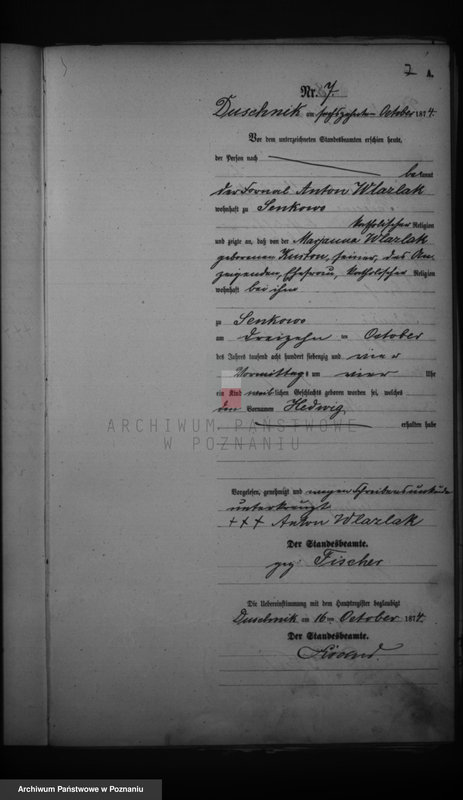 7 A.
Nr. 7.
Duschnik am sechszehnten October 1874.
Vor dem unterzeichneten Standesbeamten erschien heute,
der Person nach
bekannt
der Fornal Anton Wlazlak
wohnhaft zu Senkowo
katholischer Religion
und zeigte an, daß von der Maryanna Wlazlak
geborenen Kurton, seiner, des An-
zeigenden, Ehefrau, katholischer Religion
wohnhaft bei ihm
zu Senkowo
am dreizehn ten October
des Jahres tausend acht hundert siebenzig und vier
Vormittags um vier Uhr
ein Kind weiblichen Geschlechts geboren worden sei, welches
den Vornamen Hedwig
erhalten habe
ARCHIWUM PAŃSTWOWE
W POZNANIU
Vorgelesen, genehmigt und wegen Schreibensunkunde
unterkreuzt
+++ Anton Wlazlak
Der Standesbeamte.
gez Fischer
Die Uebereinstimmung mit dem Hauptregister beglaubigt
Duschnik am 16ten October 1874.
Der Standesbeamte.
Archiwum Państwowe w Poznaniu